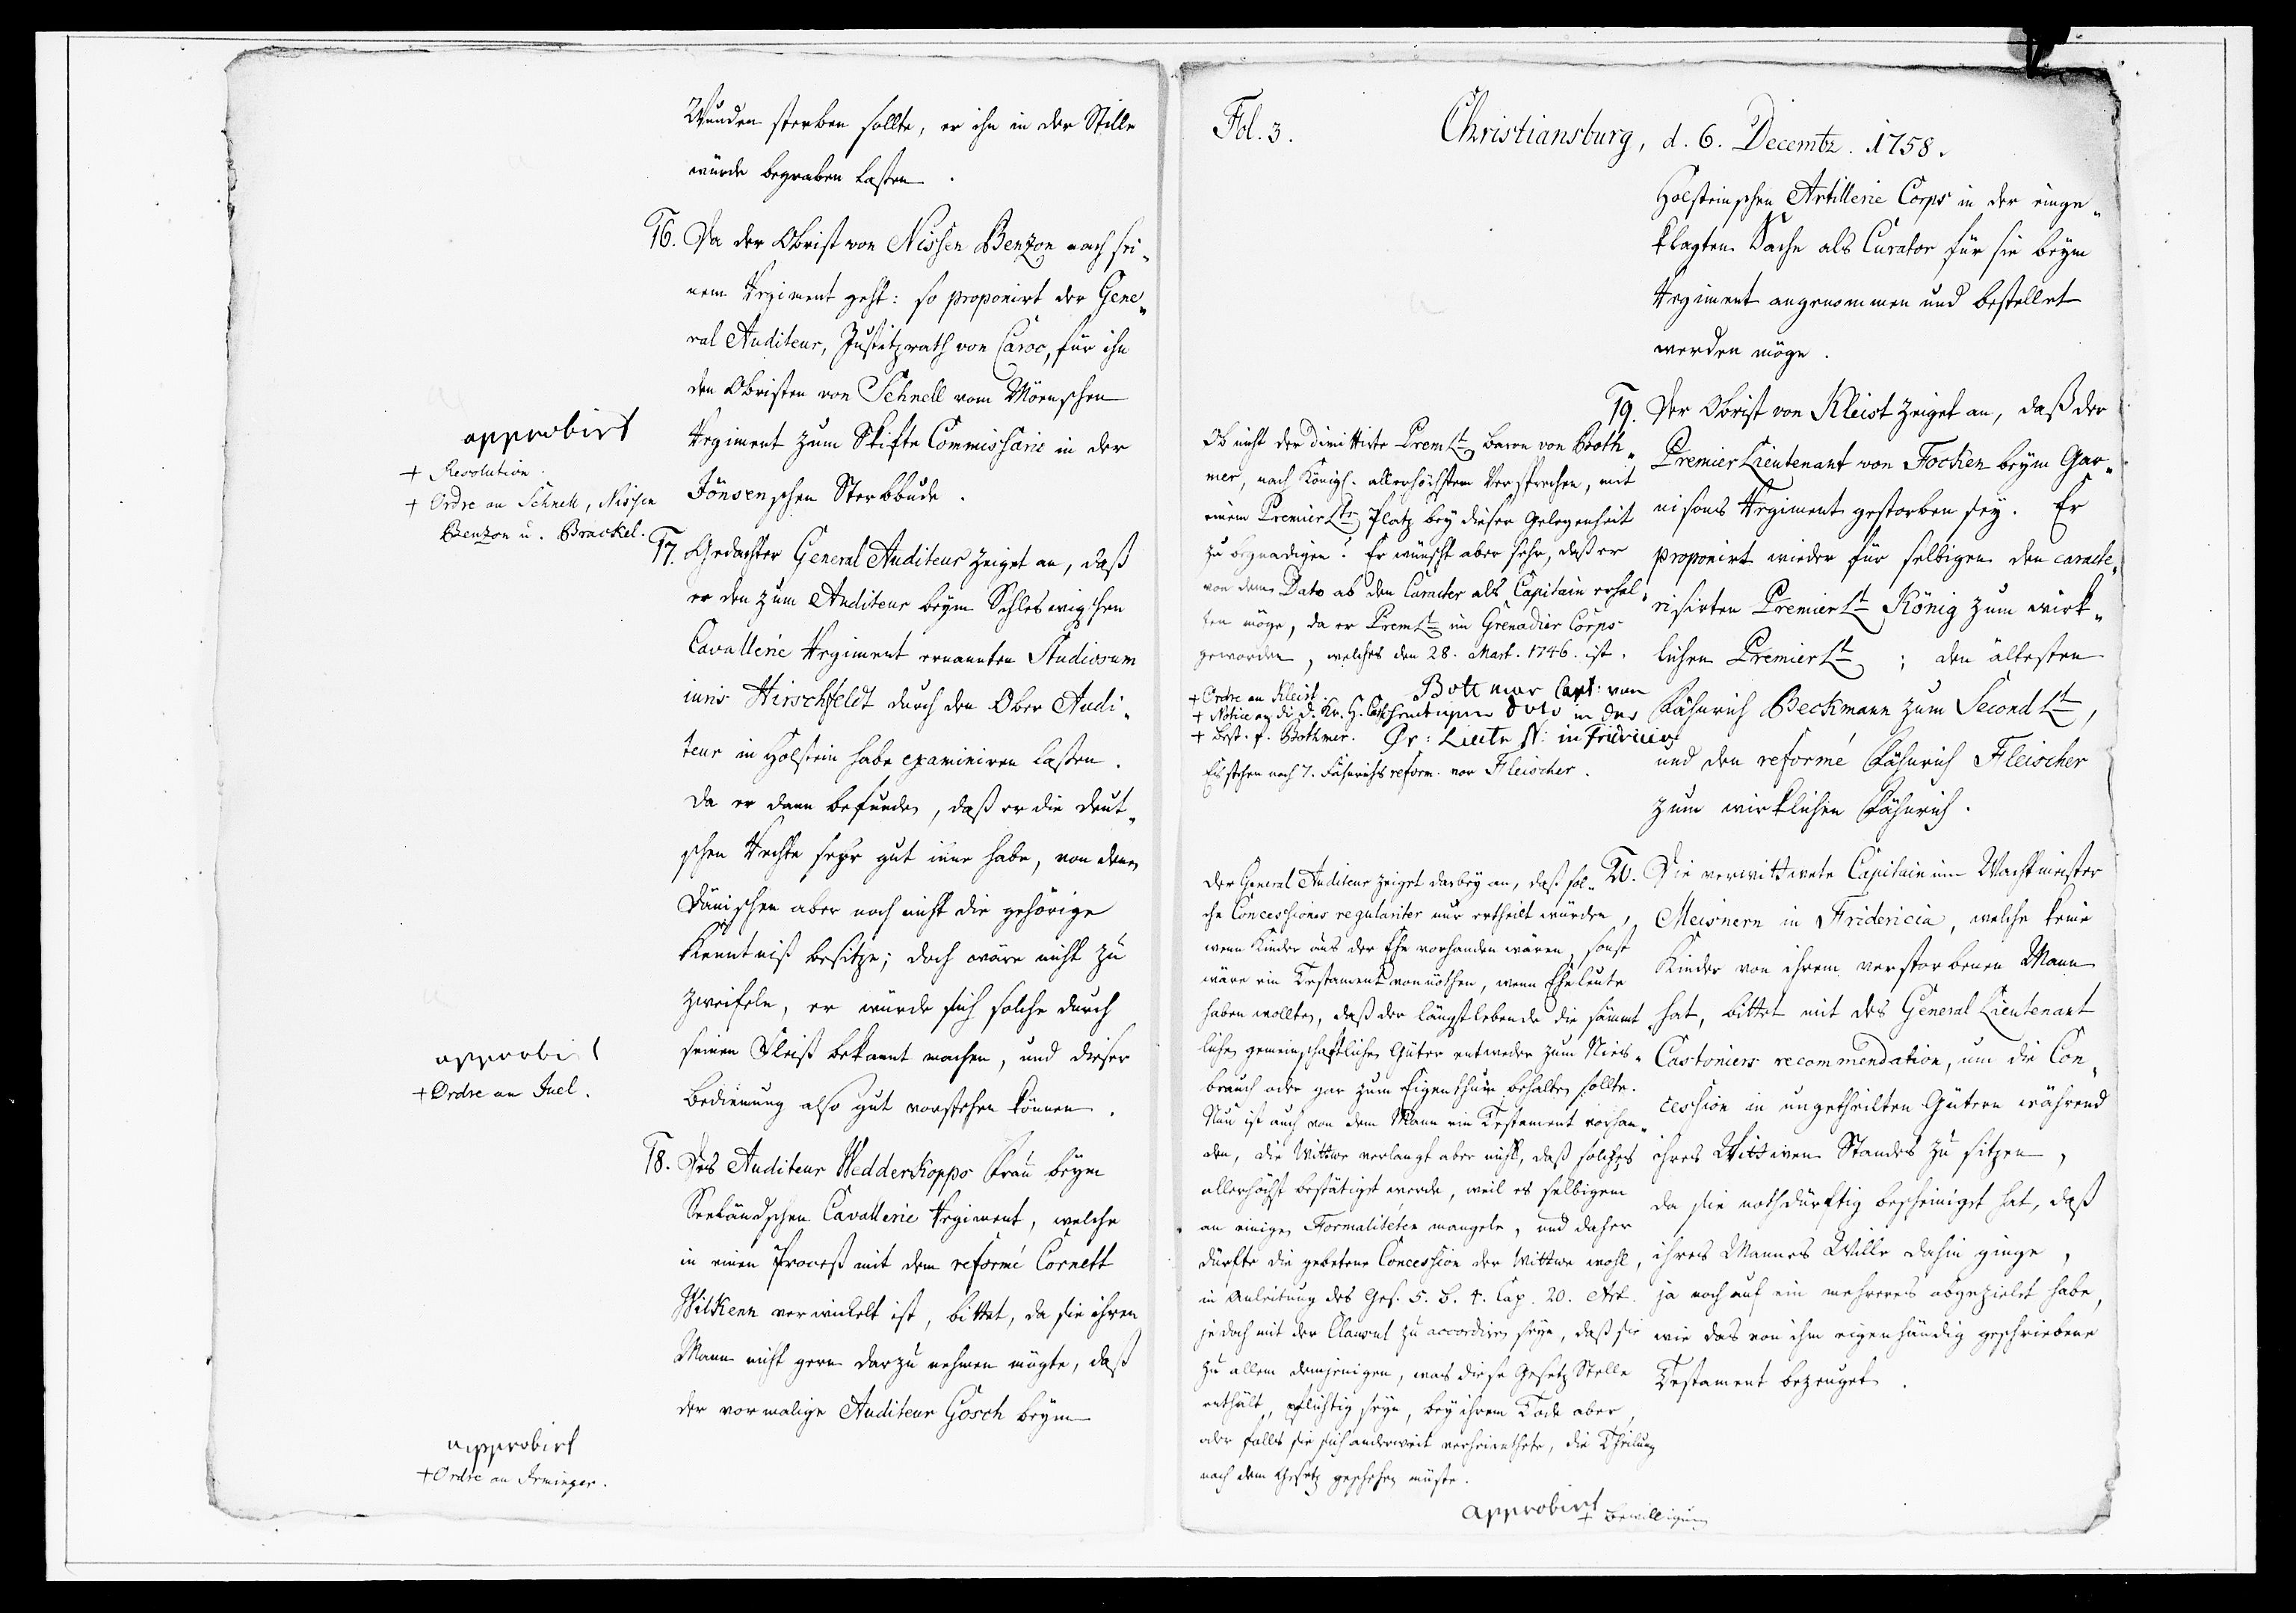 Wunden sterben sollte, er ihn in der Stille
würde begraben lassen.
16. Da der Obrist von Nissen Benzon nach sei„
nem Regiment geht: so proponirt der Gene„
ral Auditeur, Justitzrath von Caroc, für ihn
den Obristen von Schnell vom Möenschen
Regiment zum Skifte Commissarie in der
Jönsenschen Sterbbude.
approbirt
+ Resolution.
+ Ordre an Schnell, Nissen
Benzon u. Brackel.
17. Gedachter General Auditeur zeiget an, daß
er den zum Auditeur beym Schleswigschen
Cavallerie Regiment ernannten Studiosum
iuris Hirschfeldt durch den Ober Audi„
teur in Holstein habe examiniren lassen.
da er dann befunden, daß er die deut„
schen Rechte sehr gut inne habe, von denen
Dänischen aber noch nicht die gehörige
Kenntniß besitze; doch wäre nicht zu
zweifeln, er würde sich solche durch
seinen Fleiß bekannt machen, und dieser
Bedienung also gut vorstehen können.
approbirt
+ Ordre an Juel.
18. Des Auditeur Wedderkopps Frau beym
Seeländschen Cavallerie Regiment, welche
in einen Proceß mit dem reformé Cornett
Wilkenn verwickelt ist, bittet, da sie ihren
Mann nicht gern darzu nehmen mögte, daß
der vormalige Auditeur Gosch beym
approbirt
+ Ordre an Irminger.
Fol. 3.
Christiansburg, d. 6. Decembr. 1758.
Holsteinschen Artillerie Corps in der einge„
klagten Sache als Curator für sie beym
Regiment angenommen und bestellet
werden möge.
19. Der Obrist von Kleist zeiget an, daß der
Premier Lieutenant von Focken beym Gar„
nisons Regiment gestorben sey. Er
proponirt wieder für selbigen den caracte„
risirten Premier Lt König zum wirk„
lichen Premier Lt; den ältesten
Fähnrich Beckmann zum Second Lt,
und den reformé Fähnrich Fleischer
zum wirklichen Fähnrich.
Ob nicht der dimittirte Prem Lt Baron von Both„
mer, nach Königl. allerhöchstem Versprechen, mit
einem Premier Lts Platz bey dieser Gelegenheit
zu begnadigen? Er wünscht aber sehr, daß er
von dem Dato ab den Caracter als Capitain erhal„
ten möge, da er Prem Lt im Grenadier Corps
geworden, welches den 28. Mart. 1746. ist.
Bottmar Capt: von
+ Ordre an Kleist.
+ Notice an die d. Kr. H.
+ Best. f. Bothmer.
Pr: Lieutn in Fridricia
Es stehen noch 7. Fähnrichs reform. vor Fleischer.
20. Die verwittwete Capitainin Wachtmeister
Meisnern in Fridericia, welche keine
Kinder von ihrem verstorbenen Mann
hat, bittet mit des General Lieutenant
Castoniers recommendation, um die Con„
cession in ungetheilten Gütern während
ihres Wittwen Standes zu sitzen,
da sie nothdürftig bescheiniget hat, daß
ihres Mannes Wille dahin ginge,
ja noch auf ein mehreres abgezielet habe,
wie das von ihm eigenhändig geschriebene
Testament bezeuget.
Der General Auditeur zeiget darbey an, daß sol„
che Concessiones regulariter nur ertheilt würden,
wenn Kinder aus der Ehe vorhanden wären, sonst
wäre ein Testament vonnöthen, wenn Eheleute
haben wollten, daß der längstlebende die sämmt„
lichen gemeinschaftlichen Güter entweder zum Nies„
brauch oder gar zum Eigenthum behalten sollte.
Nun ist auch von dem Mann ein Testament vorhan„
den, die Wittwe verlangt aber nicht, daß solches
allerhöchst bestätiget werde, weil es selbigem
an einigen Formalitéten mangele, und daher
dürfte die gebetene Concession der Wittwe wohl,
in Anleitung des Ges. 5. B. 4. Cap. 20. Art.
jedoch mit der Clausul zu accordiren seyn, daß sie
zu allem demjenigen, was diese Gesetz Stelle
enthält, pflichtig seyn, bey ihrem Tode aber,
oder falls sie sich anderweit verheirathete, die Theilung
nach dem Gesetz geschehen müste.
approbirt
+ Bewilligung